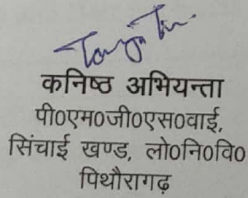 कनिष्ठ अभियन्ता
पी0एम0जी0एस0वाई,
सिंचाई खण्ड, लो0नि0वि0
पिथौरागढ़